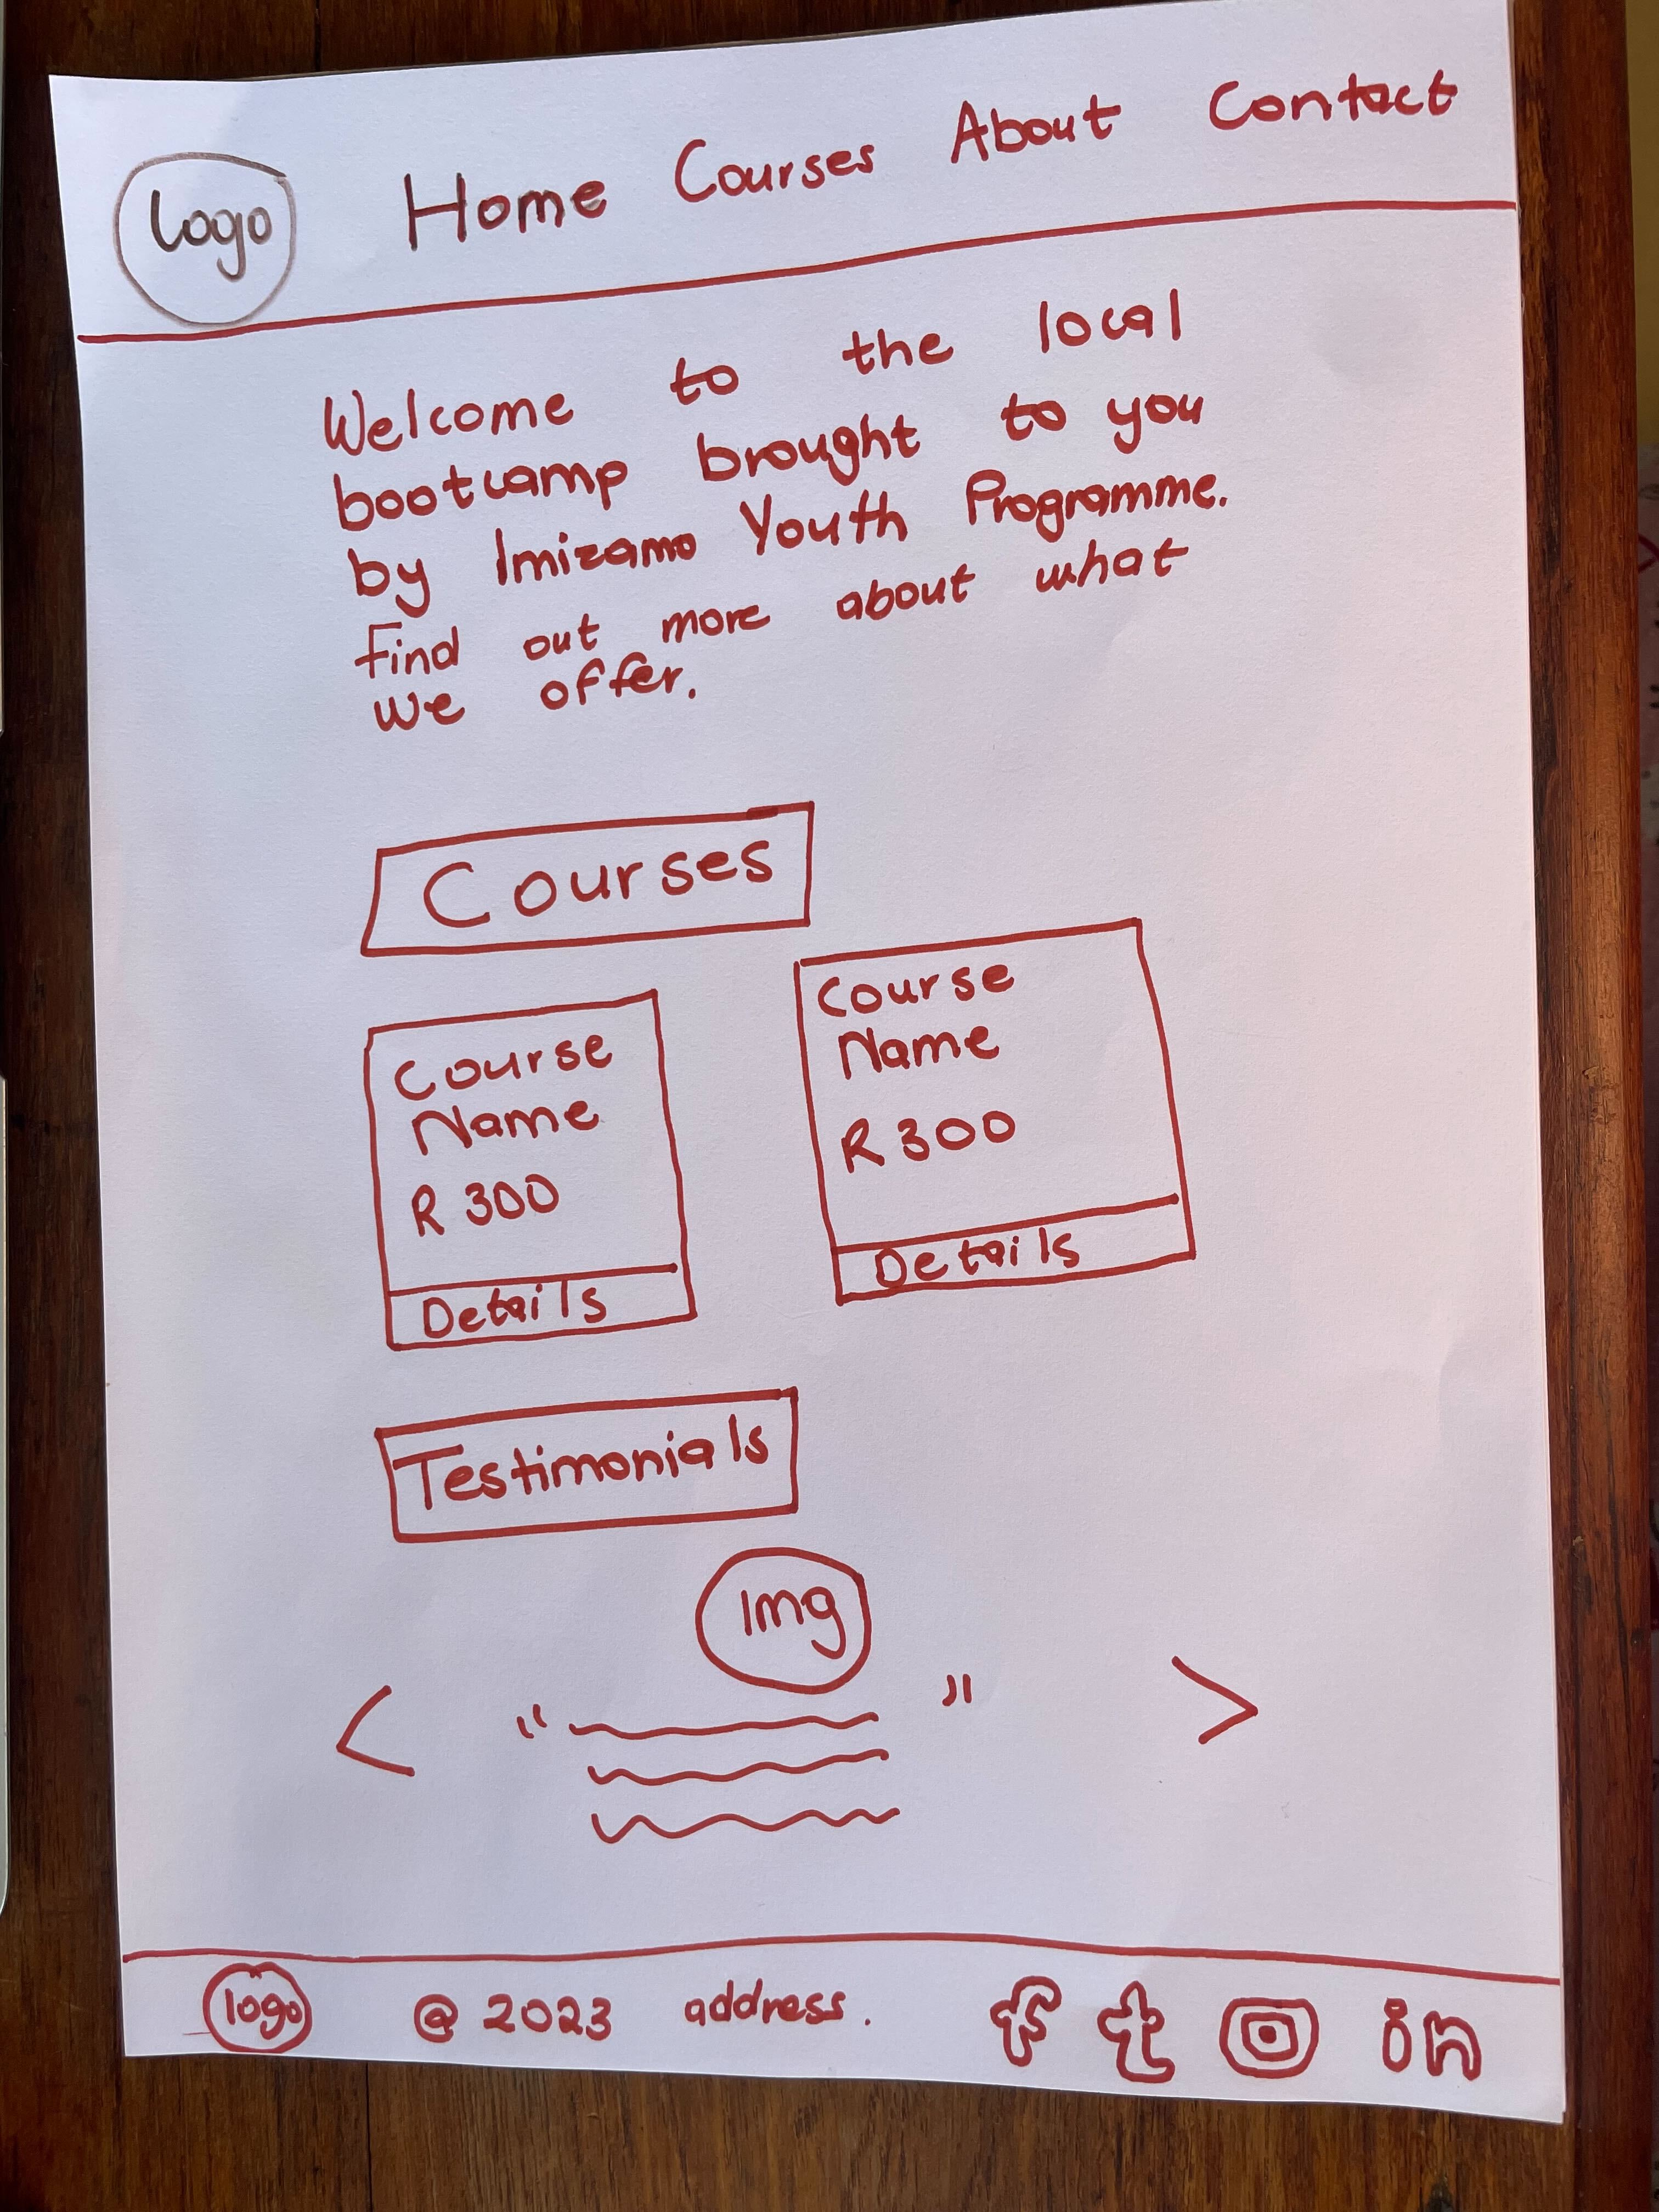 Logo Home Courses About Contact
Welcome to the local
bootcamp brought to you
by Imizamo Youth Programme.
Find out more about what
we offer.
Courses
Course
Name
R 300
Details
Course
Name
R 300
Details
Testimonials
Img
< " " >
logo @ 2023 address. f t in